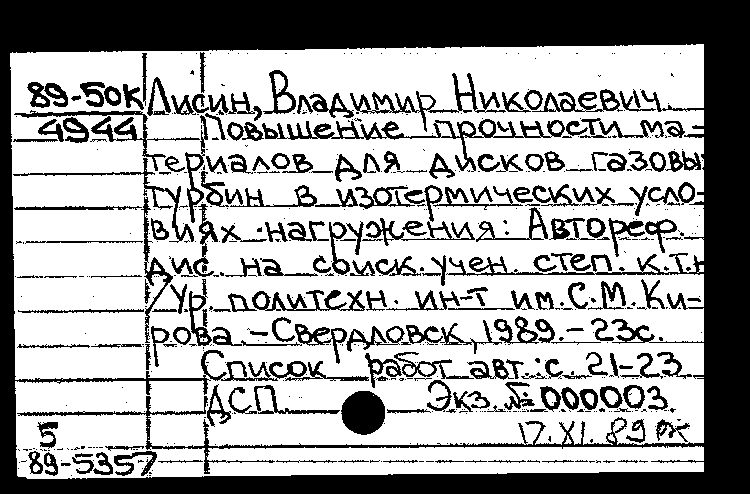 89-50К Лисин, Владимир Николаевич.
4944 Повышение прочности ма-
териалов для дисков газовы
турбин в изотермических усло-
виях нагружения: Автореф.
дис. на соиск. учен. степ. к.т.н
/Ур. политехн. ин-т им. С.М. Ки-
рова. – Свердловск, 1989. – 23с.
Список работ авт.: с. 21-23.
ДСП. Экз. № 000003
5 17.XI.89
89-5357